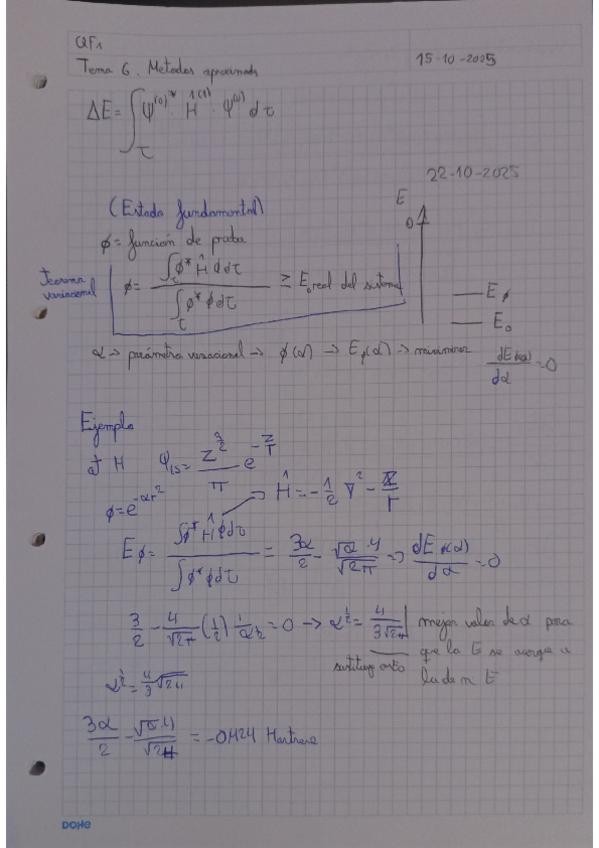 QF1
Tema 6. Metodos aproximados 15-10-2025
ΔE = ∫τ ψ⁽⁰⁾* · Ĥ⁽¹⁾ · ψ⁽⁰⁾ dτ
22-10-2025
(Estado fundamental)
E
0
ϕ = función de prueba
Teorema variacional
ϕ = ∫τ ϕ* Ĥ ϕ dτ / ∫τ ϕ* ϕ dτ ≥ E₀ real del sistema
Eϕ
E₀
α → parámetro variacional → ϕ(α) → Eϕ(α) → minimizar dE(α)/dα = 0
Ejemplo
at H ψ1s = Z^(3/2)/π e
ϕ = e^(-αr²) → Ĥ = -1/2 ∇² - Z/r
Eϕ = ∫ϕ* Ĥ ϕ dτ / ∫ϕ* ϕ dτ = 3α/2 - √α · 4/√2π → dEϕ(α)/dα = 0
3/2 - 4/√2π (1/2) 1/α^(1/2) = 0 → α^(1/2) = 4/3√2π mejor valor de α para
que la E se acerque a
sustituyo esto
α^(1/2) = 4/3 √2π
3α/2 - √α · 4/√2π = -0'424 Hartrees
DOHE